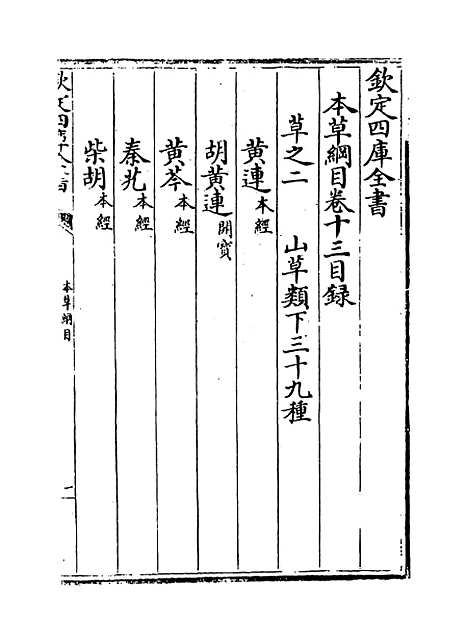 欽定四庫全書
本草綱目卷十三目録
草之二　山草類下三十九種
黄連本經
胡黄連開寳
黄芩本經
秦艽本經
柴胡本經
本草綱目